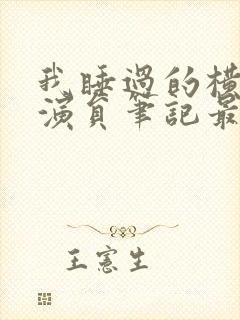 我睡過的橫
演員筆記最
王憲生